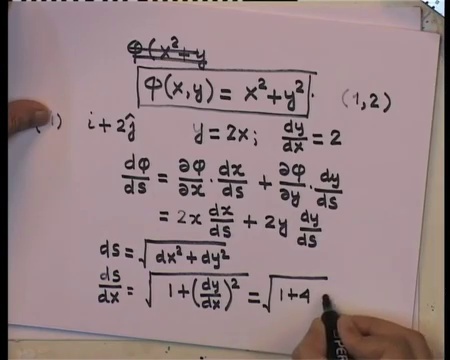 φ(x²+y
φ(x,y) = x²+y².
(1,2)
1) i+2ĵ y=2x; dy/dx = 2
dφ/ds = ∂φ/∂x · dx/ds + ∂φ/∂y · dy/ds
= 2x dx/ds + 2y dy/ds
ds = √(dx²+dy²)
ds/dx = √(1+(dy/dx)²) = √(1+4